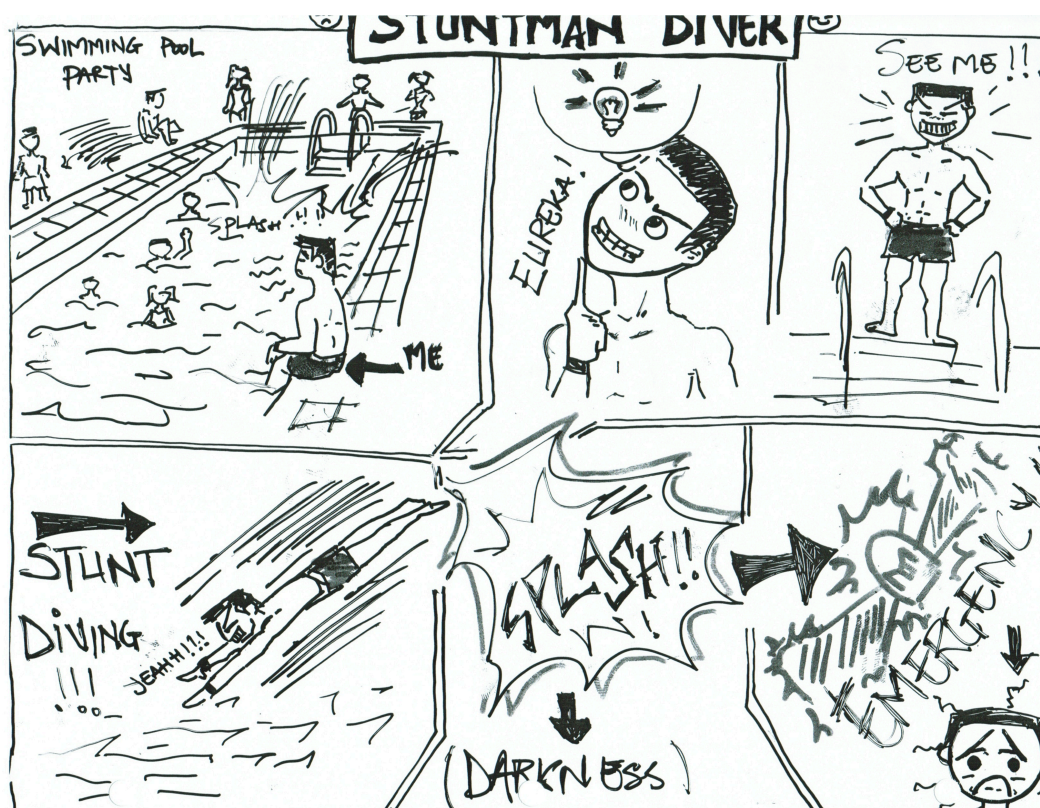 STUNTMAN DIVER
SWIMMING POOL
PARTY
SPLASH!!!
ME
EUREKA!
SEE ME!!!
STUNT
DIVING
!!!
JEAHH!!!!
SPLASH!!!
(DARKNESS)
E
EMERGENCY